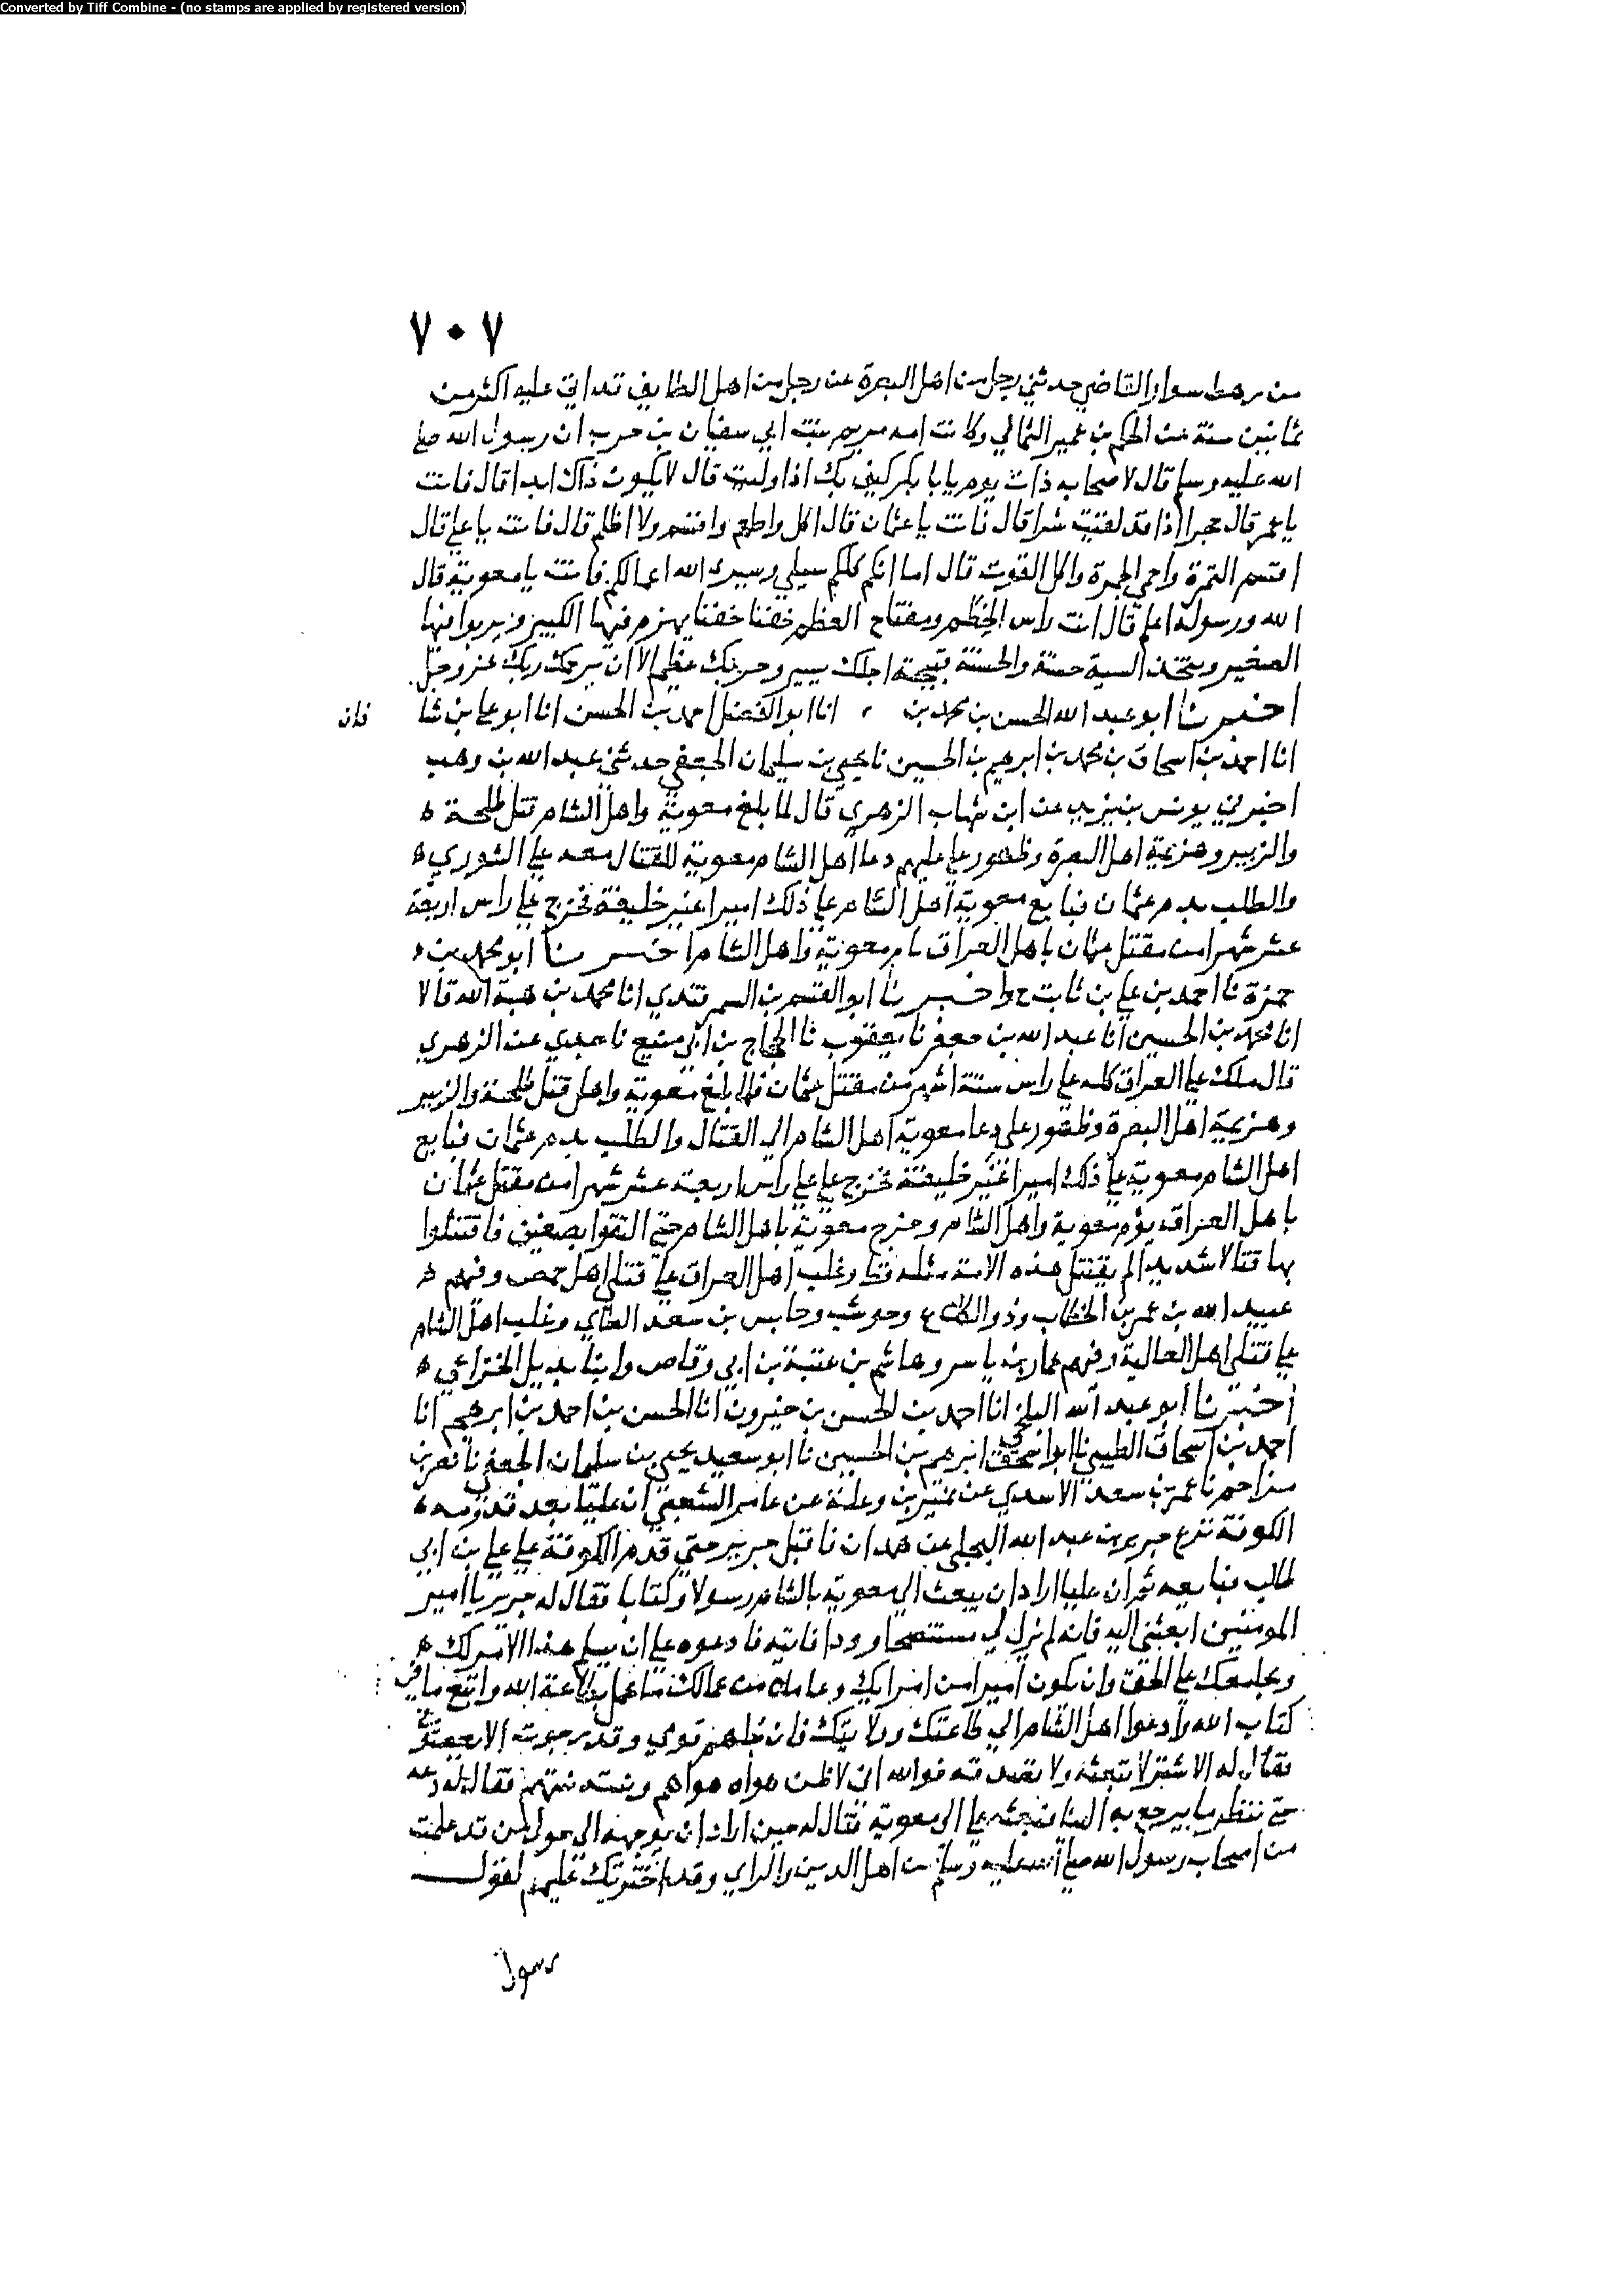 Converted by Tiff Combine - (no stamps are applied by registered version)
٧٠٧
من رهط سوار القاضي حدثني رجل من اهل البصرة عن رجل من اهل الطايف قد اتي عليه اكثر من
ثمانين سنة عن الحكم بن عمير الثمالي وكانت امه مريم بنت ابي سفيان بن حرب ان رسول الله صلى
الله عليه وسلم قال لاصحابه ذات يوم يابا بكر كيف بك اذا وليت قال لا يكون ذاك ابدا قال فانت
يا عمر قال حجرا اذا قد لقيت شرا قال فانت يا عثمان قال اكل واطعم واقسم ولا اظلم قال فانت يا علي قال
اقسم التمرة واحمي الجمرة واكل القوت قال اما انكم كلكم سيلي وسيرى الله اعمالكم فانت يا معوية قال
الله ورسوله اعلم قال انت راس الحظم ومفتاح العظم حقنا حقنا يهرم فيها الكبير ويربوا فيها
الصغير ويتخذ السية حسنة والحسنة قبيحة اجلك يسير وحربك عظيم الا ان يرحمك ربك عز وجل
اخبرنا ابو عبد الله الحسن بن محمد بن انا ابو الفضل احمد بن الحسن انا ابو علي بن شا ذان
انا احمد بن اسحاق بن محمد بن ابرهيم بن الحسين نا يحيى بن سليمان الجعفي حدثني عبد الله بن وهب
اخبرني يونس بن يزيد عن ابن شهاب الزهري قال لما بلغ معوية واهل الشام قتل طلحة ه
والزبير وهزيمة اهل البصرة وظهور علي عليهم دعا اهل الشام معوية للقتال معه علي الشوري ه
والطلب بدم عثمان فبايع معوية اهل الشام علي ذلك اميرا غير خليفة فخرج علي راس اربعة
عشر شهرا من مقتل عثمان باهل العراق يام معوية واهل الشام اخبرنا ابو محمد بن
حمزة نا احمد بن علي بن ثابت ح واخبرنا ابو القسم بن السمرقندي انا محمد بن هبة الله قالا
انا محمد بن الحسين انا عبد الله بن جعفر نا يعقوب نا الحجاج بن ابي منيع نا جدي عن الزهري
قال ملك علي العراق كله علي راس ستة اشهر من مقتل عثمان فلما بلغ معوية واهل قتل طلحة والزبير
وهزيمة اهل البصرة وظهور علي دعا معوية اهل الشام الي القتال والطلب بدم عثمان فبايع
اهل الشام معوية علي ذلك اميرا غير خليفة فخرج علي علي راس اربعة عشر شهرا من مقتل عثمان
باهل العراق يؤم معوية واهل الشام وخرج معوية باهل الشام حتي التقوا بصفين فاقتتلوا
بها قتالا شديدا لم يقتتل هذه الامة مثله قط وغلب اهل العراق علي قتلي اهل حمص وفيهم ه
عبيد الله بن عمر بن الخطاب وذو الكلاع وحوشب وحابس بن سعد الطاي وغلب اهل الشام
علي قتلي اهل العالية وفيهم عمار بن ياسر وهاشم بن عتبة بن ابي وقاص وابنا بديل الخزاعي ه
اخبرنا ابو عبد الله البلخي انا احمد بن الحسن بن خيرون انا الحسن بن احمد بن ابرهيم انا
احمد بن اسحاق الطيبي نا ابو اسحق ابرهيم بن الحسين نا ابو سعيد يحيى بن سليمان الجعفي نا نصر بن
مزاحم نا عمر بن سعد الاسدي عن نمير بن وعلة عن عامر الشعبي ان عليا بعد قدومه
الكوفة نزع جرير بن عبد الله البجلي عن همدان فاقبل جرير حتي قدم الكوفة علي علي بن ابي
طالب فبايعه ثم ان عليا اراد ان يبعث الي معوية بالشام رسولا وكتابا فقال له جرير يا امير
المومنين ابعثني اليه فانه لم يزل لي مستنصحا وودا فاتيه فادعوه علي ان يسلم هذا الامر لك ه
ويجامعك علي الحق وان يكون اميرا من امرايك وعاملا من عمالك ما عمل بطاعة الله واتبع ما في
كتاب الله وادعوا اهل الشام الي طاعتك وولايتك فان جلهم قومي وقد رجوت الا يعصوني
فقال له الاشتر لا تبعثه ولا تصدقه فوالله اني لاظن هواه هواهم ونيته نيتهم فقال له دعه
حتي ننظر ما يرجع به الينا فبعثه علي الي معوية فقال له حين اراد ان يوجهه الي حولي من قد علمت
من اصحاب رسول الله صلي الله عليه وسلم من اهل الدين والراي وقد اخترتك عليهم لقول
رسول